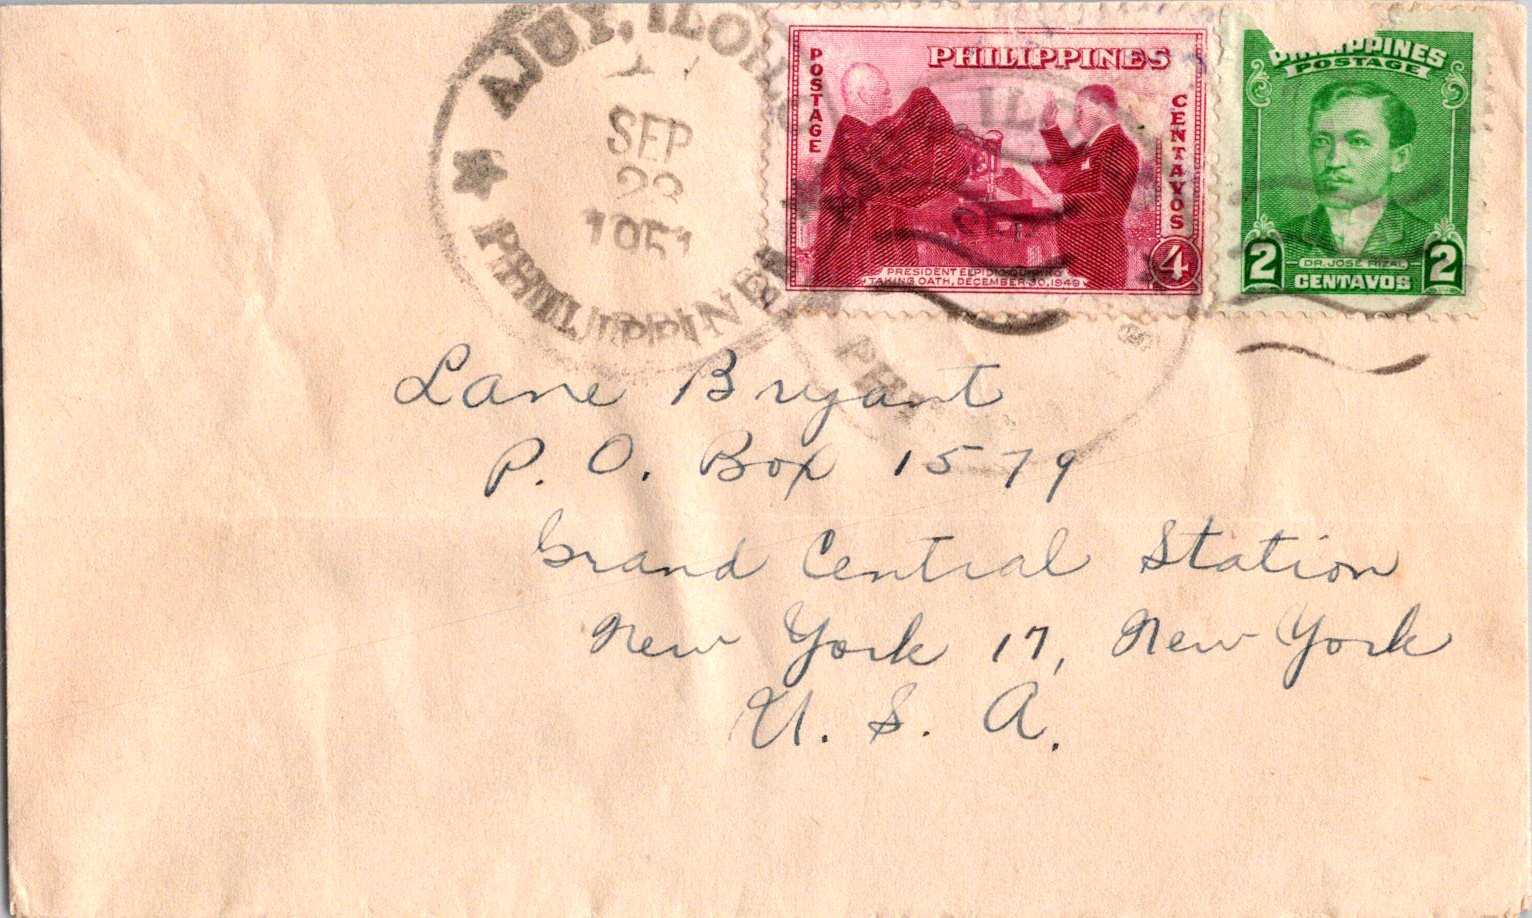 AJUY, ILOILO
SEP
1951
PHILIPPINES
PHILIPPINES
POSTAGE
CENTAVOS
4
PRESIDENT ELPIDIO QUIRINO
TAKING OATH, DECEMBER 30, 1949
PHILIPPINES
POSTAGE
DR. JOSE RIZAL
2 CENTAVOS 2
Lane Bryant
P. O. Box 1579
Grand Central Station
New York 17, New York
U. S. A.